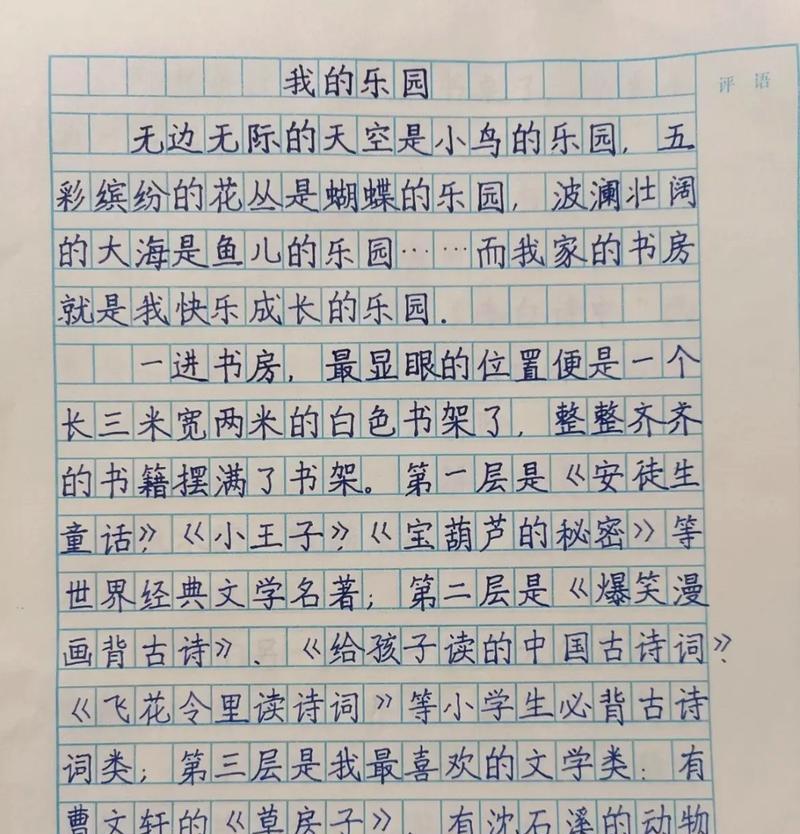 评语
我的乐园
无边无际的天空是小鸟的乐园，五
彩缤纷的花丛是蝴蝶的乐园，波澜壮阔
的大海是鱼儿的乐园……而我家的书房
就是我快乐成长的乐园.
一进书房，最显眼的位置便是一个
长三米宽两米的白色书架了，整整齐齐
的书籍摆满了书架。第一层是《安徒生
童话》、《小王子》、《宝葫芦的秘密》等
世界经典文学名著；第二层是《爆笑漫
画背古诗》、《给孩子读的中国古诗词》、
《飞花令里读诗词》等小学生必背古诗
词类；第三层是我最喜欢的文学类：有
曹文轩的《草房子》、有沈石溪的动物